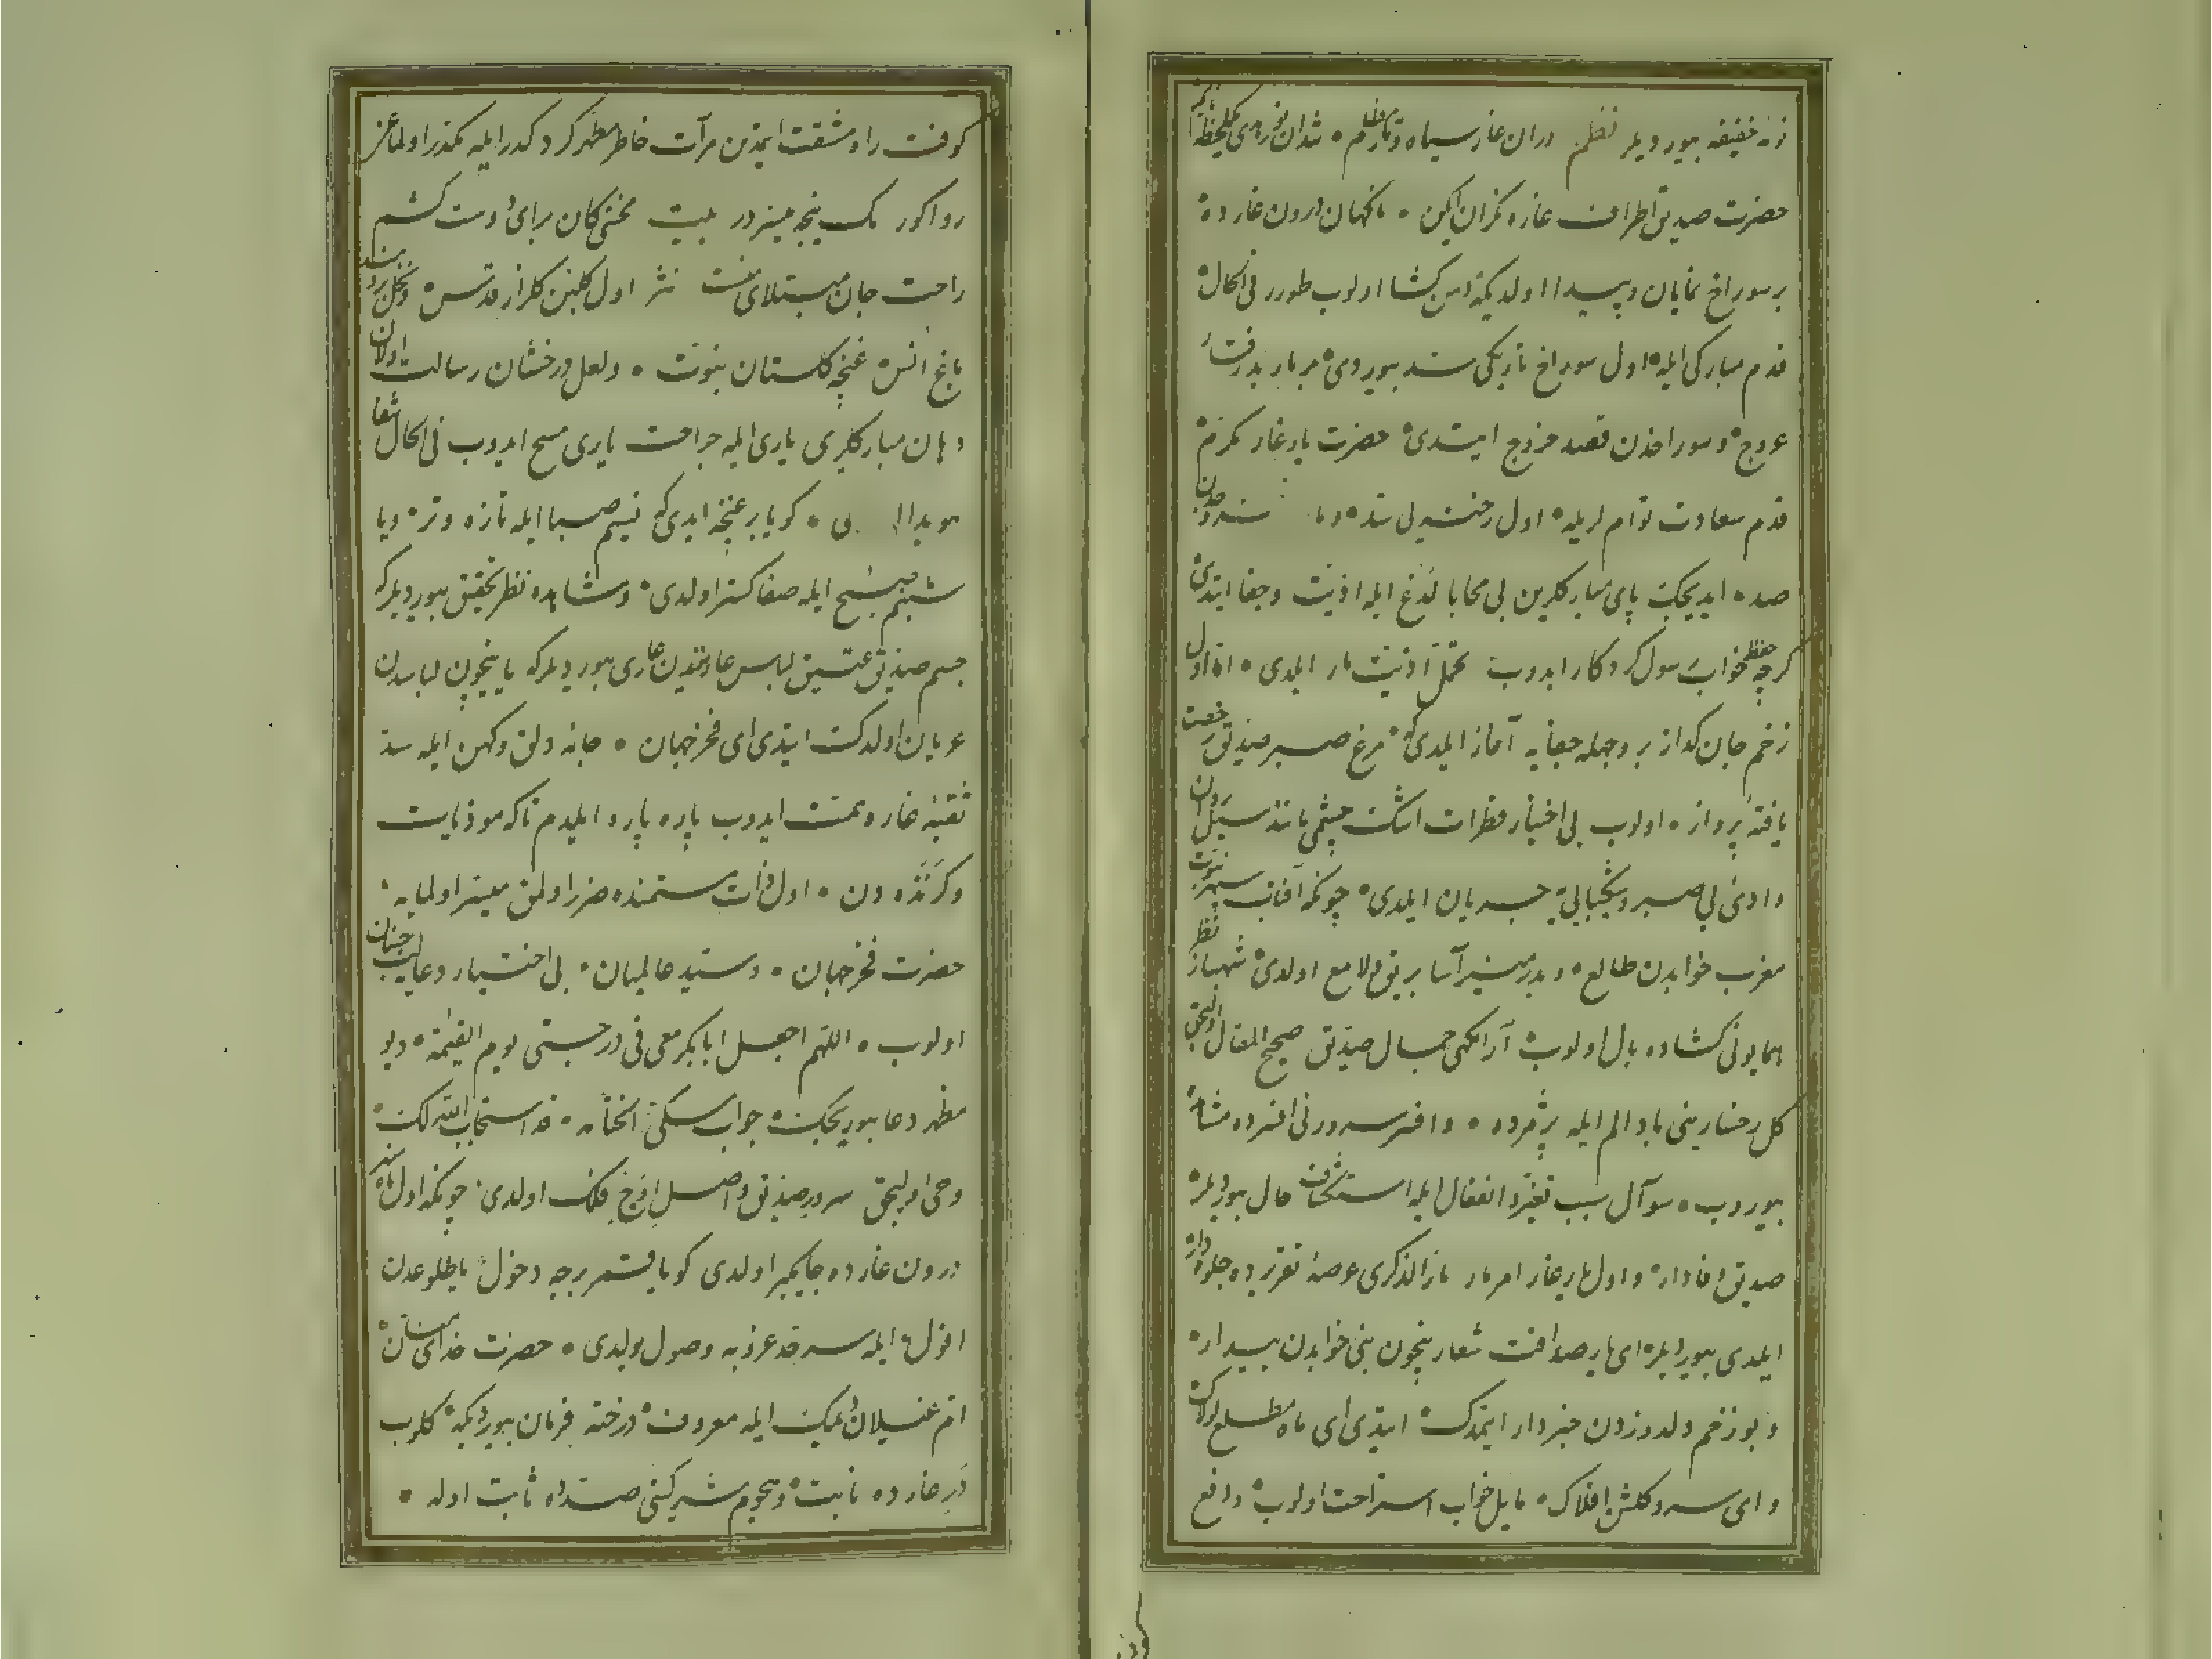 حضرت صدیق اطراف غاره نگران ایکن ۰ ناکهان درون غارده
بر سوراخ نمایان و پیدا اولدیکه دهن کشا اولوب طورر فی الحال
قدم مبارکی ایله اول سوراخ تاریکی سد بیوردی
عروج و سوراخدن قصد خروج ایتدی حضرت یار غار مکرم
قدم سعادت توام لریله اول رخنه یی سد
صد ۰ ایدیجک پای مبارکلرین بی محابا لدغ ایله اذیت و جفا ایتدی
کرچه حفظ خواب رسول کردکار ایدوب تحمل اذیت مار ایلدی ۰ اما اول
زخم جان کداز بر وجهله جفایه آغاز ایلدی که مرغ صبر صدیق رخصت
یافتهٔ پرواز ۰ اولوب بی اختیار قطرات اشک چشمی مانند سیل روان
وادئ بی صبر و شکیبایی یه جریان ایلدی ۰ چونکه آفتاب سپهر نبوت
مغرب خوابدن طالع ۰ و بدر منیر آسا بریق و لامع اولدی شهباز نظر
همایونی کشاده بال اولوب آرامکهی جمال صدیق صحیح المقال
کل رخسارینی باد الم ایله پژمرده ۰ و افسر سرورنی افسرده مشاهده
بیوروب ۰ سوآل سبب تغیر و انفعال ایله استکشاف حال بیوردیلر
صدیق وفادار ۰ و اول یار غار امر مار مار الذکری عرصهٔ تقریرده جلوه دار
ایلدی بیوردیلر ای یار صداقت شعار نیچون بنی خوابدن بیدار
و بو زخم دلدوزدن خبردار ایتمدک ایتدی ای ماه مطلع لولاک
و ای سرو کلشن افلاک ۰ مایل خواب استراحت اولوب واقع
کوفت راه و مشقت ایتدن مرآت خاطر مطهر کرد کدر ایله مکدر اولماغی
روا کورمک نیجه میسر در بیت محنتی کان برای دوست کشم
راحت جان مبتلای منست نثر اول کلبن کلزار قدس و نخل برومند
باغ انس غنچهٔ کلستان نبوت ۰ و لعل درخشان رسالت اولان
دهان مبارکلری یاری ایله جراحت یاری مسح ایدوب فی الحال شفا
هویدا ۰ کویا بر غنچه ایدی که نسیم صبا ایله تازه و تر ۰ و یا
شبنم صبح ایله صفا کستر اولدی ۰ و مشاهده نظر تحقیق بیوردیلر که
جسم صدیق عتیق لباس عادتدن عاری بیوردیلر که یا نیچون لباسدن
عریان اولدک ایتدی ای فخر جهان ۰ جانه دلق و کهن ایله سد
ثقبهٔ غاره همت ایدوب پاره پاره ایلیدم تا که موذیات
و کزنده دن ۰ اول ذات ستمنده ضرر اولمق میسر اولمایه
حضرت فخر جهان ۰ و سید عالمیان ۰ بی اختیار دعایه لب جنبان
اولوب ۰ اللهم اجعل ابابکر معی فی درجتی یوم القیمة ۰ دیو
مظهر دعا بیوریجک جواب مسکی الختامه ۰ قد استجاب الله لک
وحی اولیجق سرور صدیق واصل اوج فلک اولدی چونکه اول ماه منیر
درون غارده جایکیر اولدی کویا قمر برجه دخول یا طلوعدن
افول ایله سرحد غروبه وصول بولدی ۰ حضرت خدای منان
ام غیلان دیمک ایله معروف درخته فرمان بیوردیکه کلوب
در غارده نابت و هجوم مشرکینی صدده ثابت اوله ۰